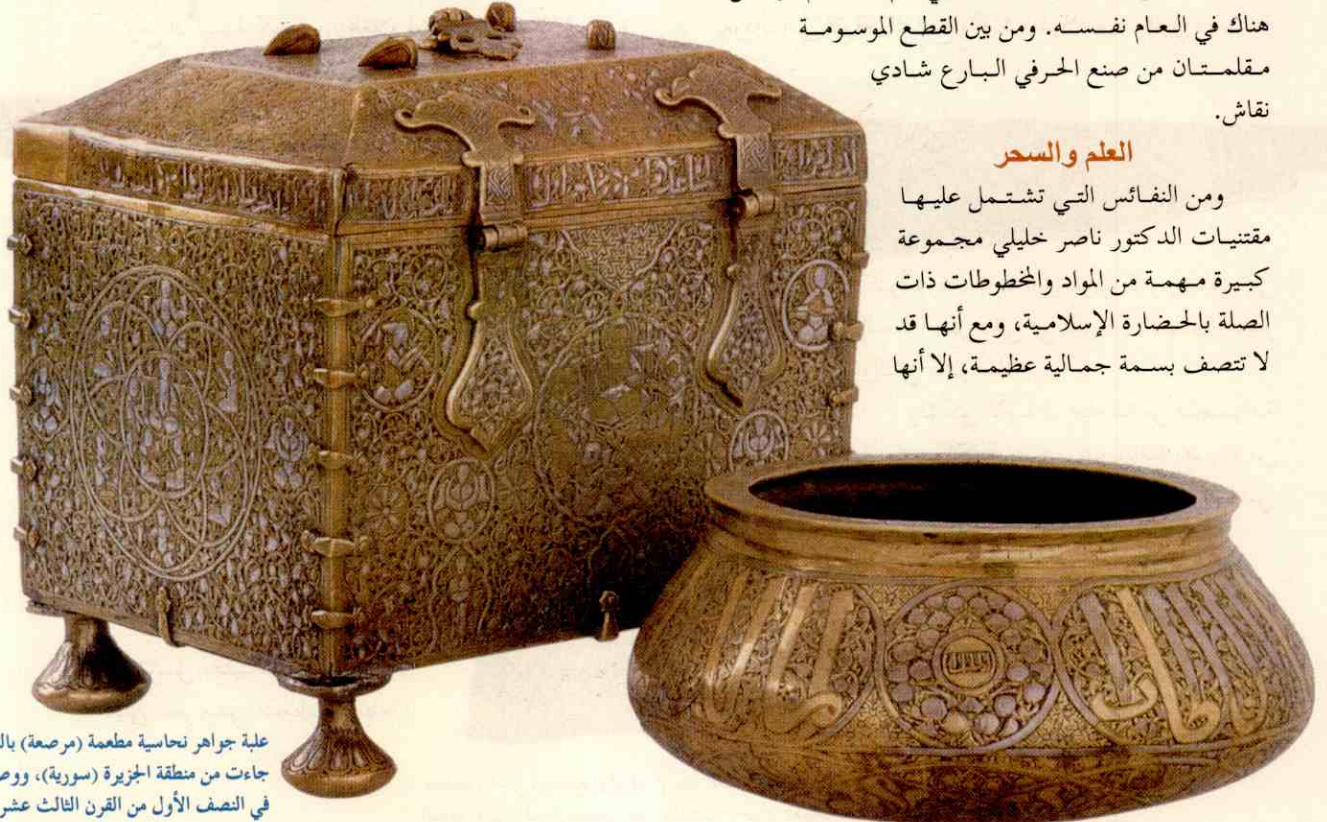 هناك في العام نفسه. ومن بين القطع الموسومة
مقلمتان من صنع الحرفي البارع شادي
نقاش.
العلم والسحر
ومن النفائس التي تشتمل عليها
مقتنيات الدكتور ناصر خليلي مجموعة
كبيرة مهمة من المواد والمخطوطات ذات
الصلة بالحضارة الإسلامية، ومع أنها قد
لا تتصف بسمة جمالية عظيمة، إلا أنها
علبة جواهر نحاسية مطعمة (مرصعة)
جاءت من منطقة الجزيرة (سورية)،
في النصف الأول من القرن الثالث عشر